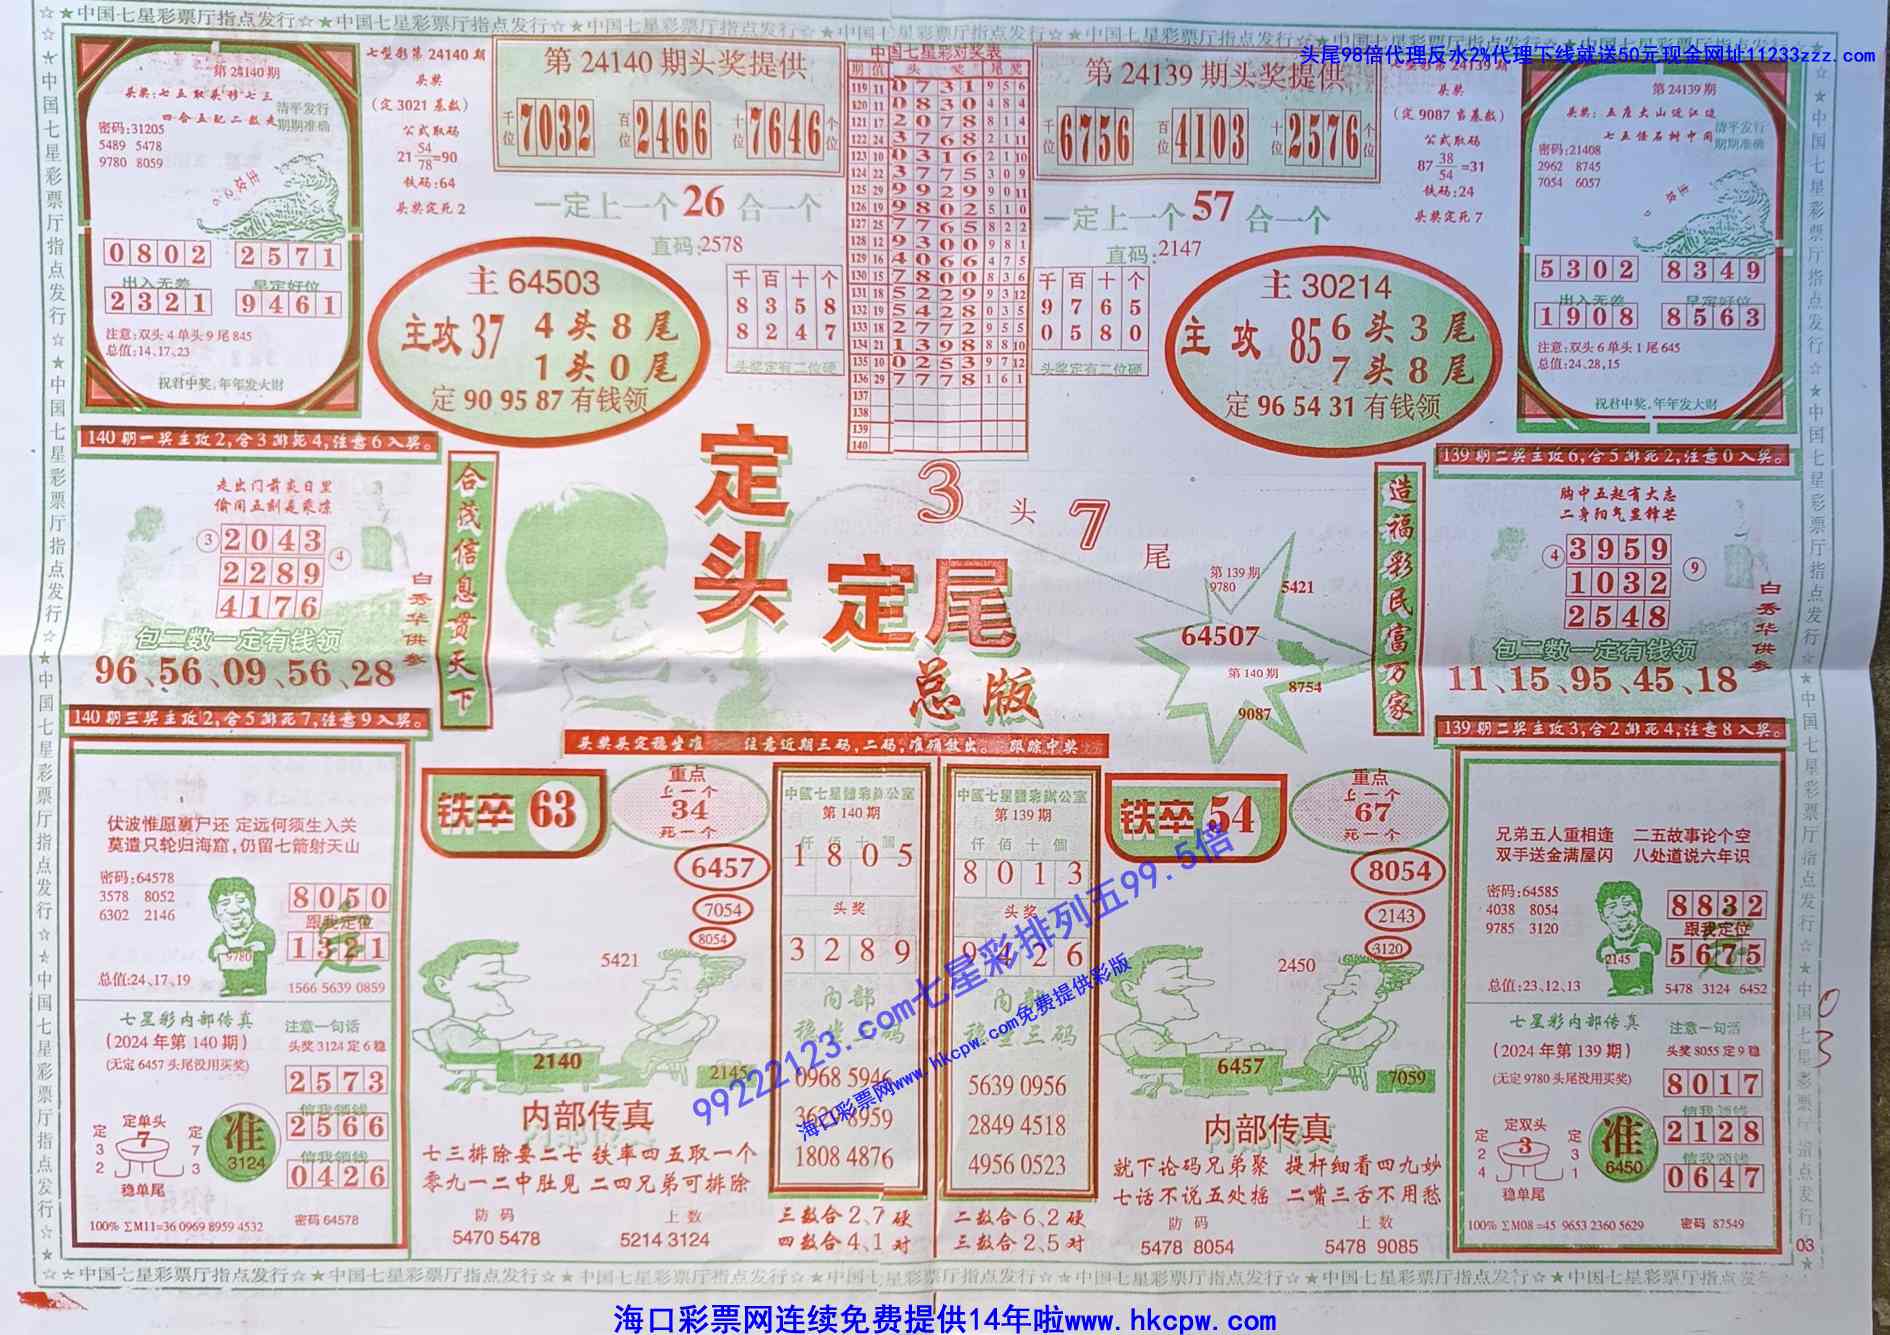 ☆★中国七星彩票厅指点发行☆★中国七星彩票厅指点发行☆★中国七星彩票厅指点发行☆★中国七星彩票厅指点发行☆★中国七星彩票厅指点发行
头尾98倍代理反水2%代理下线就送50元现金网址11233zzz.com
第24140期
头奖:七五取头移七三
四合五配二数走
清平发行
期期准确
密码:31205
5489 5478
9780 8059
0802 2571
出入无差 早定好位
2321 9461
注意:双头4单头9尾845
总值:14、17、23
祝君中奖,年年发大财
七型彩第24140期
头奖
(定3021基数)
公式取码
21 54/78=90
铁码:64
头奖定死2
第24140期头奖提供
千位 7032 百位 2466 十位 7646 个位
一定上一个26合一个
直码:2578
主64503
主攻37 4头8尾
1头0尾
定90 95 87有钱领
千百十个
8358
8247
头奖定有二位硬
中国七星彩对奖表
期 值 头奖 尾奖
119 11 0731 9 5 6
120 11 0830 4 8 4
121 17 2078 8 1 4
122 24 3768 2 1 11
123 10 0316 2 1 10
124 22 3775 3 0 9
125 29 9929 9 0 11
126 19 9802 5 1 0
127 25 7765 8 2 2
128 12 9300 9 8 1
129 16 4066 4 7 5
130 15 7800 8 3 6
131 18 5229 9 3 12
132 19 5428 0 3 5
133 18 2772 9 5 5
134 21 1398 8 8 10
135 10 0253 9 7 12
136 29 7778 1 6 1
137
138
139
140
第24139期头奖提供
千位 6756 百位 4103 十位 2576 个位
一定上一个57合一个
直码:2147
千百十个
9765
0580
头奖定有二位硬
主30214
主攻85 6头3尾
7头8尾
定96 54 31有钱领
头奖
(定9087当基数)
公式取码
87 38/54=31
铁码:24
头奖定死7
第24139期
头奖:五座大山近江边
七五怪石树中间
清平发行
期期准确
密码:21408
2962 8745
7054 6057
5302 8349
出入无差 早定好位
1908 8563
注意:双头6单头1尾645
总值:24、28、15
祝君中奖,年年发大财
140期一奖主攻2,合3排死4,注意6入奖。
走出门前炎日里
偷闲五刻是乘凉
③ 2043 ④
2289
4176
包二数一定有钱领
96、56、09、56、28
白秀华供参
140期三奖主攻2,合5排死7,注意9入奖。
合茂信息贯天下
定头
定尾
总版
3头7尾
第139期
9780
5421
64507
第140期
8754
9087
造福彩民富万家
139期二奖主攻6,合5排死2,注意0入奖。
胸中五起有大志
二身阳气显锋芒
④ 3959 ⑨
1032
2548
包二数一定有钱领
11、15、95、45、18
白秀华供参
139期二奖主攻3,合2排死4,注意8入奖。
头奖头定稳坐准 注意近期三码,二码,准确放出。 跟踪中奖
伏波惟愿裹尸还 定远何须生入关
莫遣只轮归海窟,仍留七箭射天山
密码:64578
3578 8052
6302 2146
9780
8050
跟我定位
1321
总值:24、17、19
1566 5639 0859
七星彩内部传真
(2024年第140期)
(无定6457头尾没用买奖)
注意一句话
头奖3124定6稳
2573
信我领钱
2566
信我领钱
0426
定单头
定32 7 定73
稳单尾
准
3124
100% ΣM11=36 0969 8959 4532
密码64578
铁卒63
重点
上一个
34
死一个
6457
7054
8054
5421
2140
2145
内部传真
七三排除要二七 铁率四五取一个
零九一二中肚见 二四兄弟可排除
防码
5470 5478
上数
5214 3124
中國七星體彩辦公室
第140期
仟佰十個
1805
头奖
3289
内部
0968 5946
1808 4876
三数合2、7硬
四数合4、1对
中國七星體彩辦公室
第139期
仟佰十個
8013
头奖
9426
5639 0956
2849 4518
4956 0523
二数合6、2硬
三数合2、5对
铁卒54
重点
上一个
67
死一个
8054
2143
3120
2450
6457
7059
内部传真
就下论码兄弟聚 提杆细看四九妙
七话不说五处摇 二嘴三舌不用愁
防码
5478 8054
上数
5478 9085
兄弟五人重相逢 二五故事论个空
双手送金满屋闪 八处道说六年识
密码:64585
4038 8054
9785 3120
2145
8832
跟我定位
5675
总值:23、12、13
5478 3124 6452
七星彩内部传真
(2024年第139期)
(无定9780头尾没用买奖)
注意一句话
头奖8055定9稳
8017
信我领钱
2128
信我领钱
0647
定双头
定24 3 定31
稳单尾
准
6450
100% ΣM08=45 9653 2360 5629
密码87549
03
03
99222123.com七星彩排列五99.5倍
海口彩票网www.hkcpw.com免费提供彩版
☆☆中国七星彩票厅指点发行☆★中国七星彩票厅指点发行☆★中国七星彩票厅指点发行☆★中国七星彩票厅指点发行☆★中国七星彩票厅指点发行☆★中国七星彩票厅指点发
海口彩票网连续免费提供14年啦www.hkcpw.com